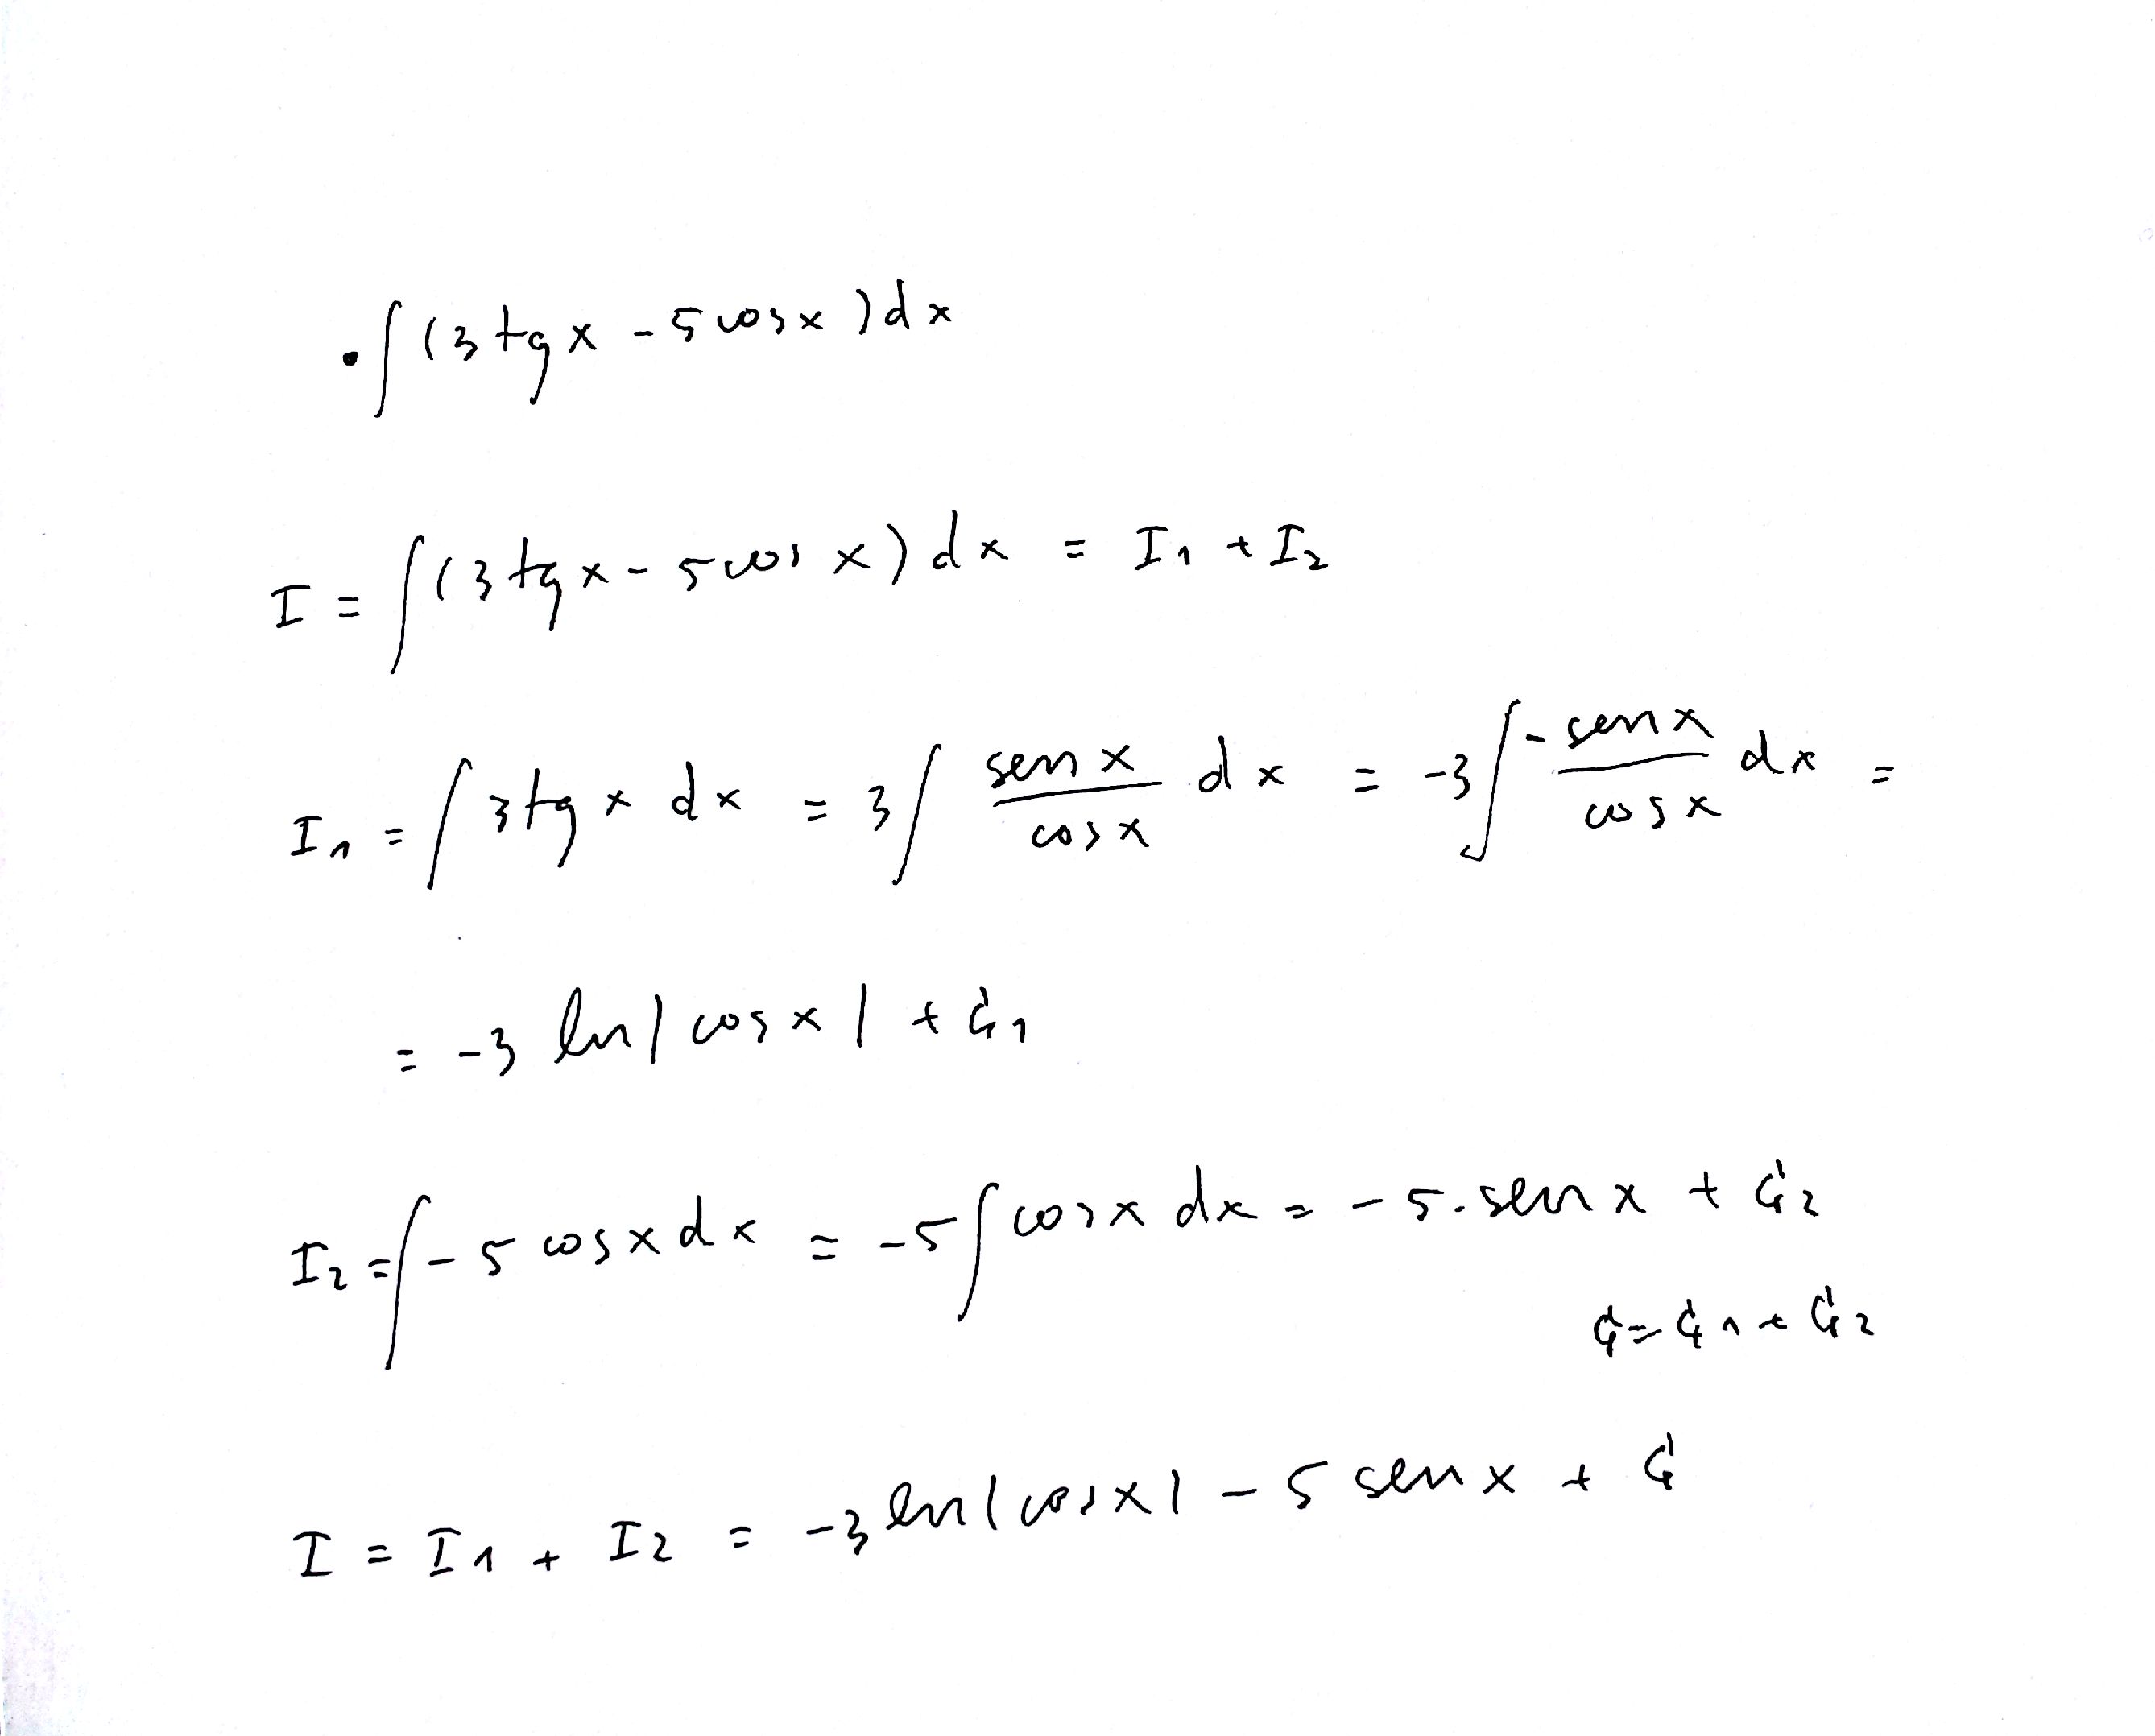 • ∫(3 tg x - 5 cos x) dx
I = ∫(3 tg x - 5 cos x) dx = I₁ + I₂
I₁ = ∫ 3 tg x dx = 3 ∫ sen x / cos x dx = -3 ∫ - sen x / cos x dx =
= -3 ln | cos x | + C₁
I₂ = ∫ - 5 cos x dx = -5 ∫ cos x dx = - 5 . sen x + C₂
C = C₁ + C₂
I = I₁ + I₂ = -3 ln | cos x | - 5 sen x + C